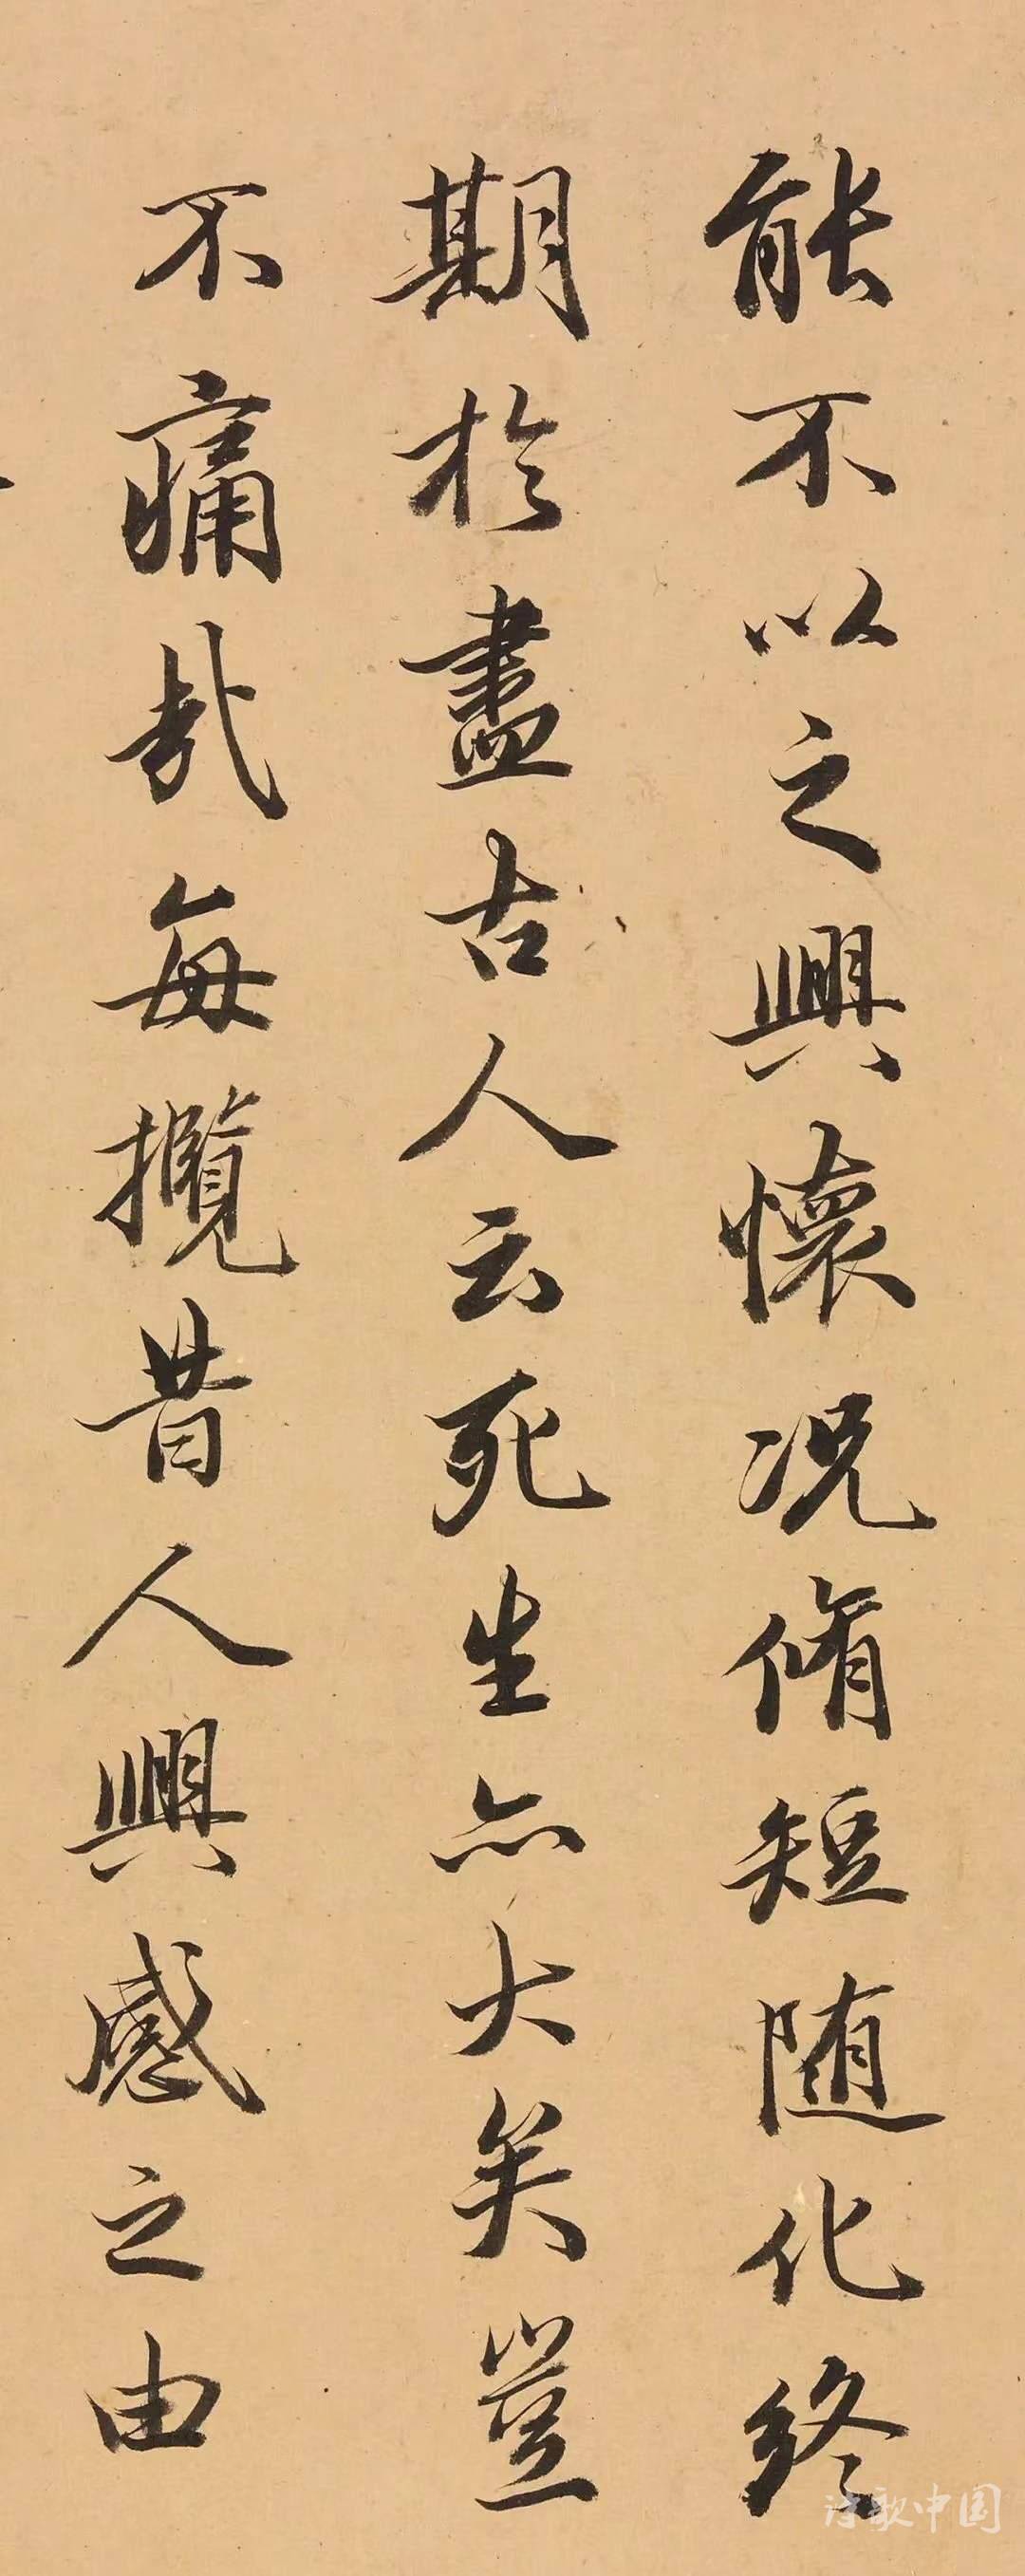 能不以之興懷况脩短随化終
期於盡古人云死生亦大矣豈
不痛哉每攬昔人興感之由
诗歌中国